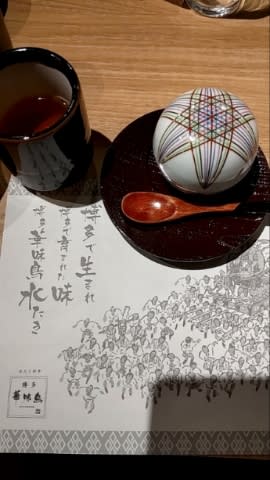 博多で生まれ
博多で育てられた味
博多華味鳥水たき
博多
華味鳥